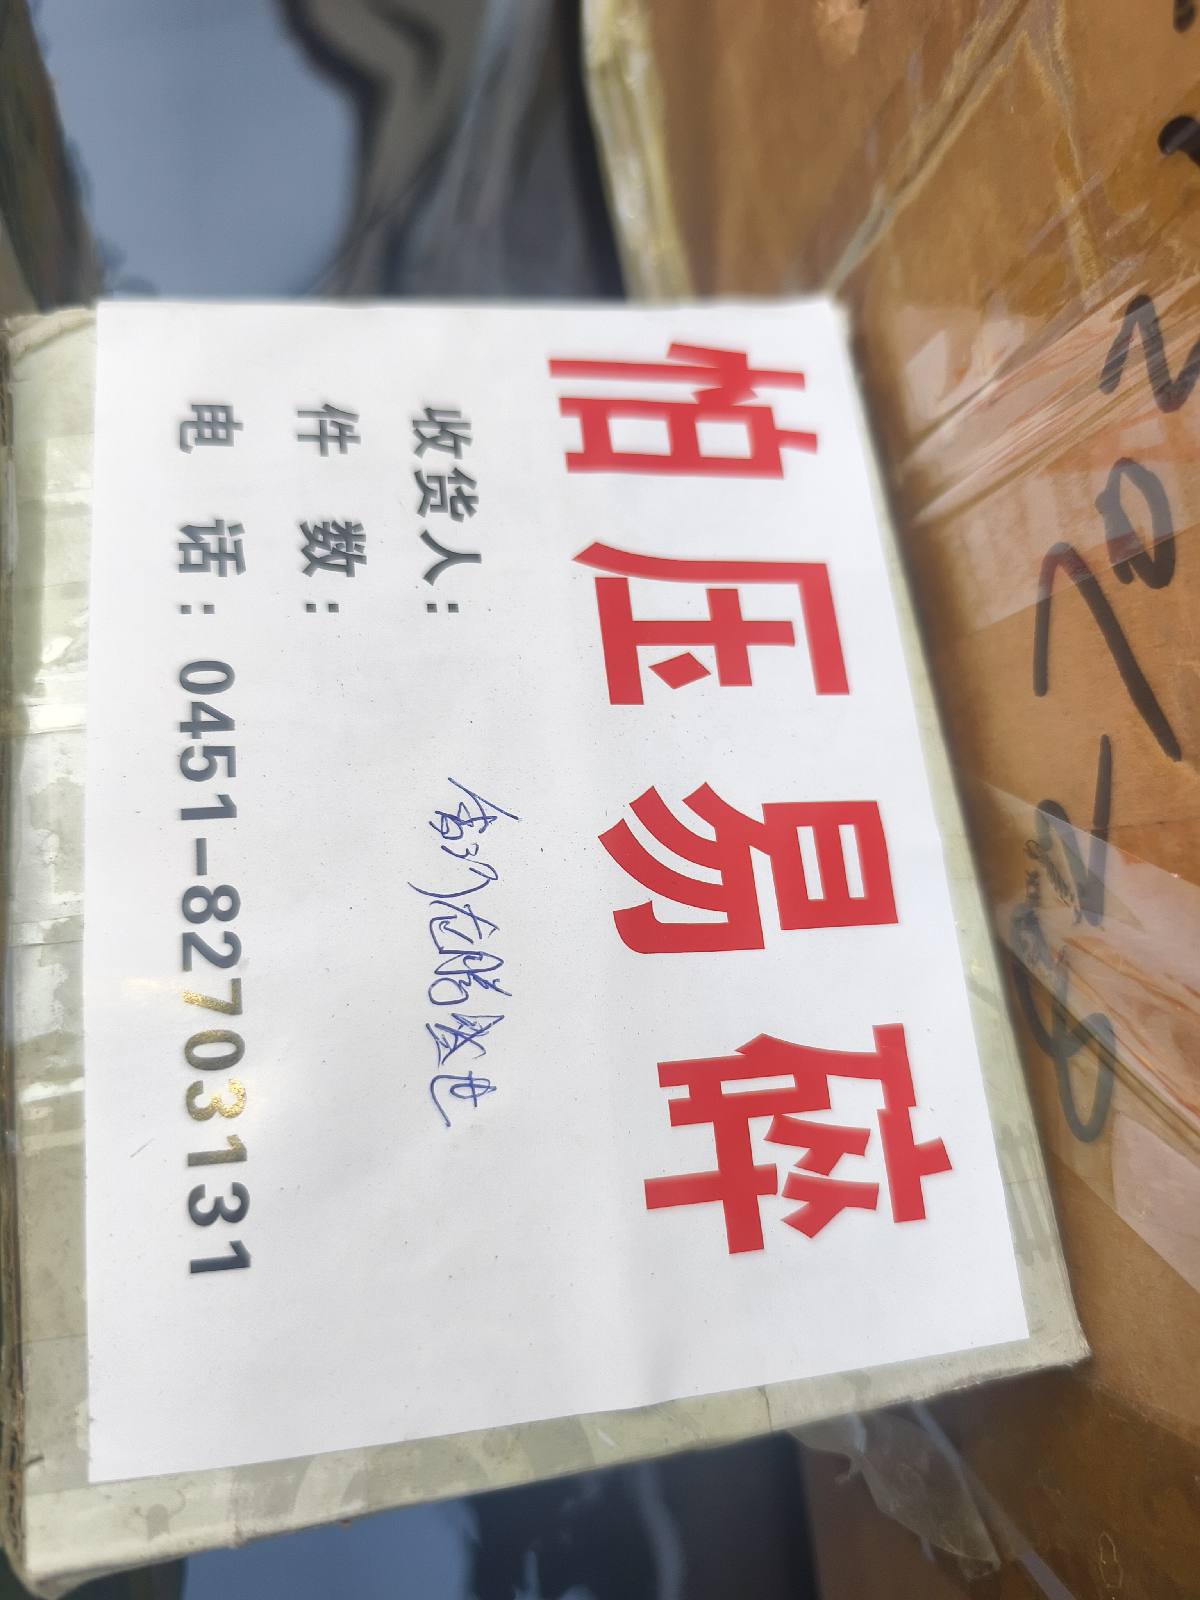 怕压易碎
收货人：
件 数：
电 话：0451-82703131
82703